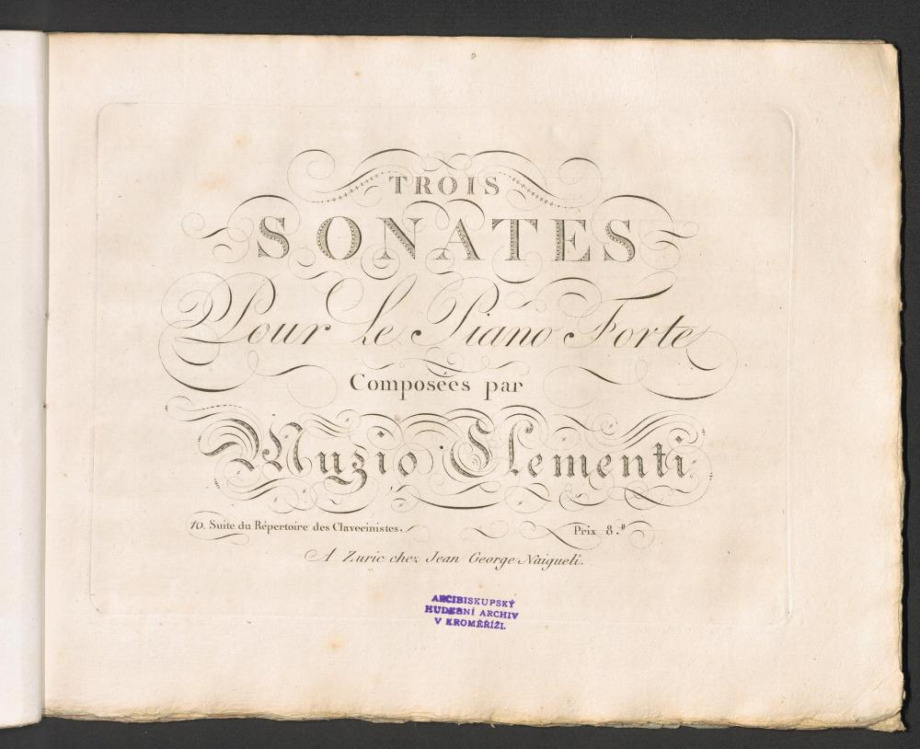 TROIS
SONATES
Pour Le Piano Forte
Composées par
Muzio Clementi.
10. Suite du Répertoire des Clavecinistes.
Prix 8.#
A Zuric chez Jean George Naigueli.
ARCIBISKUPSKÝ
HUDEBNÍ ARCHIV
V KROMĚŘÍŽI.